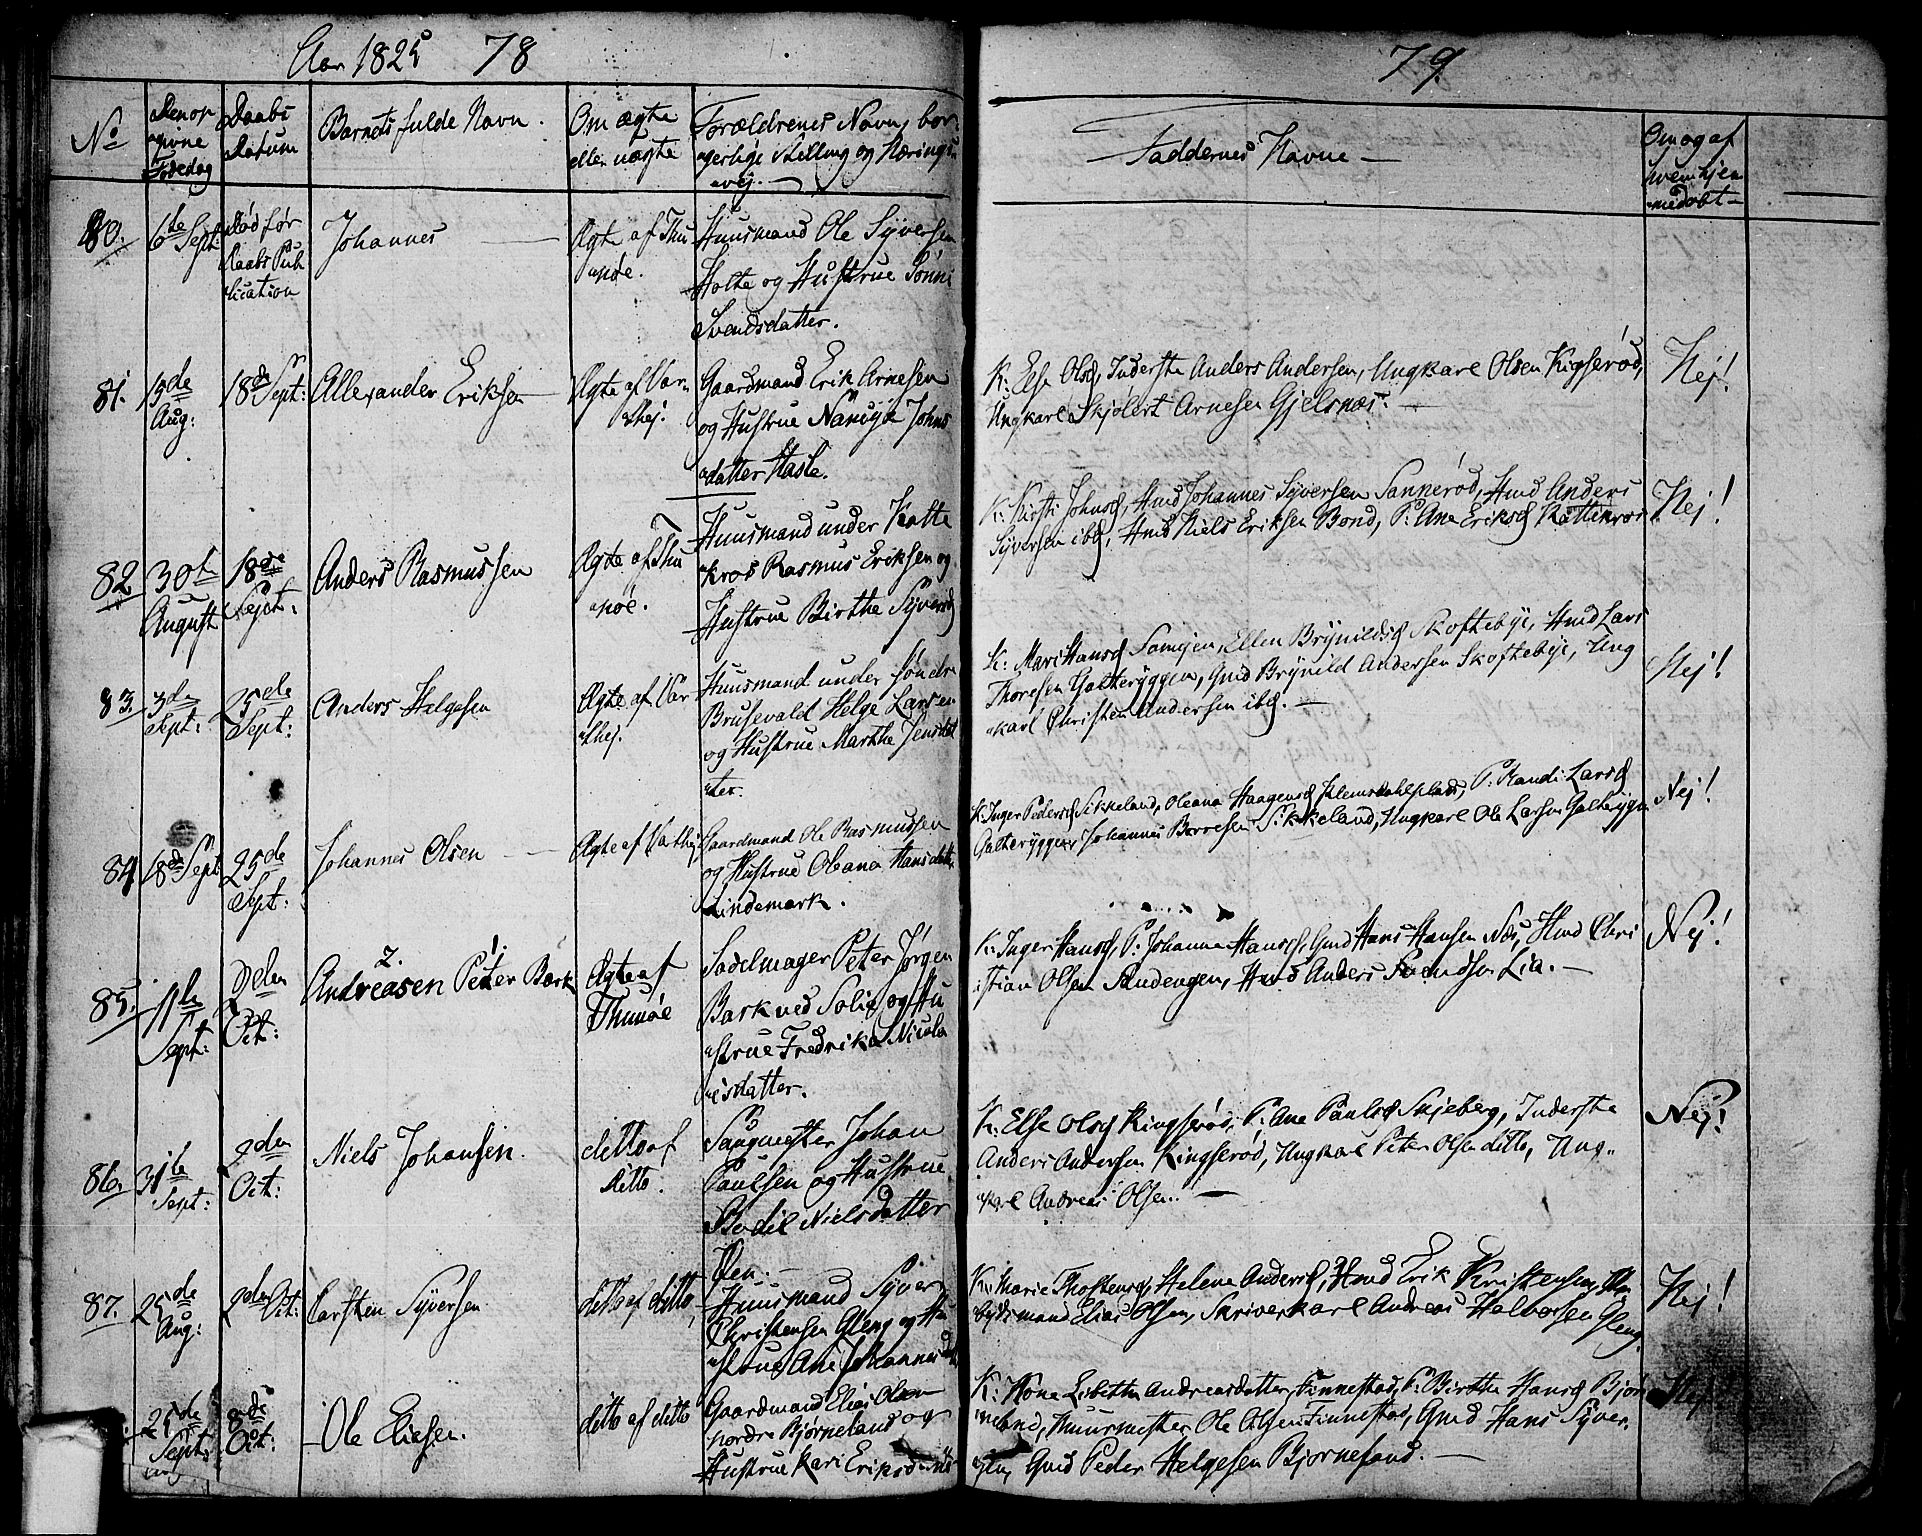 Aar 1825 78
No
Den op
givne
Fødedag
Daabs
Datum
Barnets fulde Navn.
Om ægte
eller uægte
Forældrenes Navn, bor
gerlige Stilling og Nærings
vej.
80.
6te Sept:
Død før
Daabs Pub
lication
Johannes
Ægte af Thu
nøe.
Huusmand Ole Syversen
Holte og Hustrue
Svendsdatter.
81.
19de
Aug:
18de Sept:
Allexander Eriksen
Ægte af Var
thej.
Gaardmand Erik Arnesen
og Hustrue Johns
datter Hasle.
82
30te
August
18de
Sept:
Anders Rasmussen
Ægte af Thu
nøe.
Huusmand under Katte
kros Rasmus Eriksen og
Hustrue Birthe Syversd
83.
3de
Sept:
25de
Sept:
Anders Helgesen
Ægte af Var
thej.
Huusmand under søndre
Brusevald Helge Larsen
og Hustrue Marthe Jensdat
ter.
84
18de Sept
25de
Sept:
Johannes Olsen
Ægte af Varthej
Gaardmand Ole Rasmussen
og Hustrue Oleana Hansdatt
Lindemark.
85.
11te
Sept:
2den
Oct:
2. 1.
Andreasen Peter Bark
Ægte af
Thunøe
Sadelmager Peter Jørgen
Bark ved Solie og Hu
strue Fredrikka Nicola
isdatter.
86.
31te
Sept:
2den
Oct:
Niels Johansen.
ditto af
ditto.
Saugmester Johan
Paulsen og Hustrue
Bodil Nielsdatter
Øen.
87.
25de
Aug:
2den Oct:
Carsten Syversen
ditto af ditto
Huusmand Syver
Christensen Gleng og Hu
strue Ane Johannesd
25de
Sept:
8de
Oct:
Ole Eliesen.
ditto af ditto
Gaardmand Elias Olsen
nordre Bjørneland og
Hustrue Kari Eriksd
79.
Faddernes Navne
Om og af
hvem hjem
medøbt
K: Else Olsd, Inderste Anders Andersen, Ungkarl Olsen Kigserød,
Ungkarl Skjølert Arnesen Gjelsnæs.
Nej!
K: Kirsti Johnsd, Hmd Johannes Syversen Sannerød, Hmd Anders
Syversen ibd, Hmd Niels Eriksen Bond, P: Ane Eriksd Kattekros
Nej!
K: Mari Hansd Somyen, Ellen Brynildsd Skoftebye, Hmd Lars
Thoresen Galteryggen, Gmd Brynild Andersen Skoftebye, Ung
karl Christen Andersen ibd.
Nej!
K: Inger Pedersd Sikkeland, Oleana Haagensd Klemsdahlplads, P: Randi Larsd
Galteryggen, Johannes Borresen Sikkeland, Ungkarl Ole Larsen Galterygn
Nej!
K: Inger Hansd, P: Johanna Hansd, Gmd Hans Hansen Næs, Hmd Chri
stian Olsen Sandengen, Hmd Anders Svendsen Lia.
Nej!
K: Else Olsd Kingserød, P: Ane Paulsd Skjeberg, Inderste
Anders Andersen Kingserød, Ungkarl Peter Olsen ditto, Ung
karl Andreas Olsen.
Nej!
K: Marie Thostensd, Helene Andersd, Hmd Erik Kristensen,
bydsmand Elias Olsen, Skriverkarl Andreas Halvorsen Gleng
Nej!
K: Kone Lisbeth Andreasdatter Finnestad, P: Birthe Hansd Bjør
neland, Muurmester Ole Olsen Finnestad, Gmd Hans Syver
Gmd Peder Helgesen Bjørneland.
Nej!